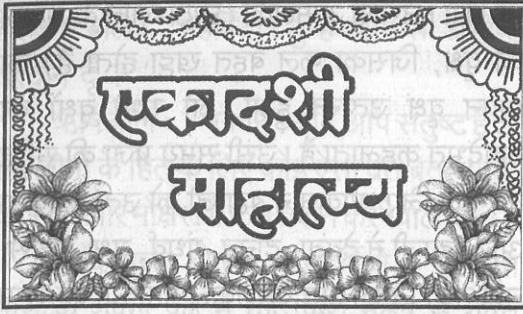 एकादशी
माहात्म्य